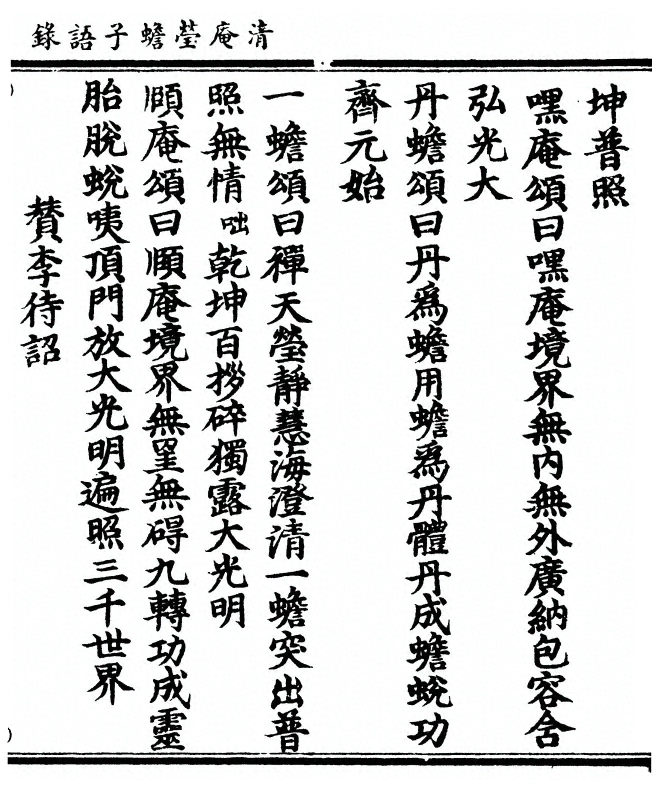 清庵瑩蟾子語錄
坤普照
嘿庵頌曰嘿庵境界無內無外廣納包容含
弘光大
丹蟾頌曰丹爲蟾用蟾爲丹體丹成蟾蛻功
齊元始
一蟾頌曰禪天瑩靜慧海澄清一蟾突出普
照無情咄乾坤百拶碎獨露大光明
頤庵頌曰頤庵境界無罣無碍九轉功成靈
胎脫蛻咦頂門放大光明遍照三千世界
贊李待詔